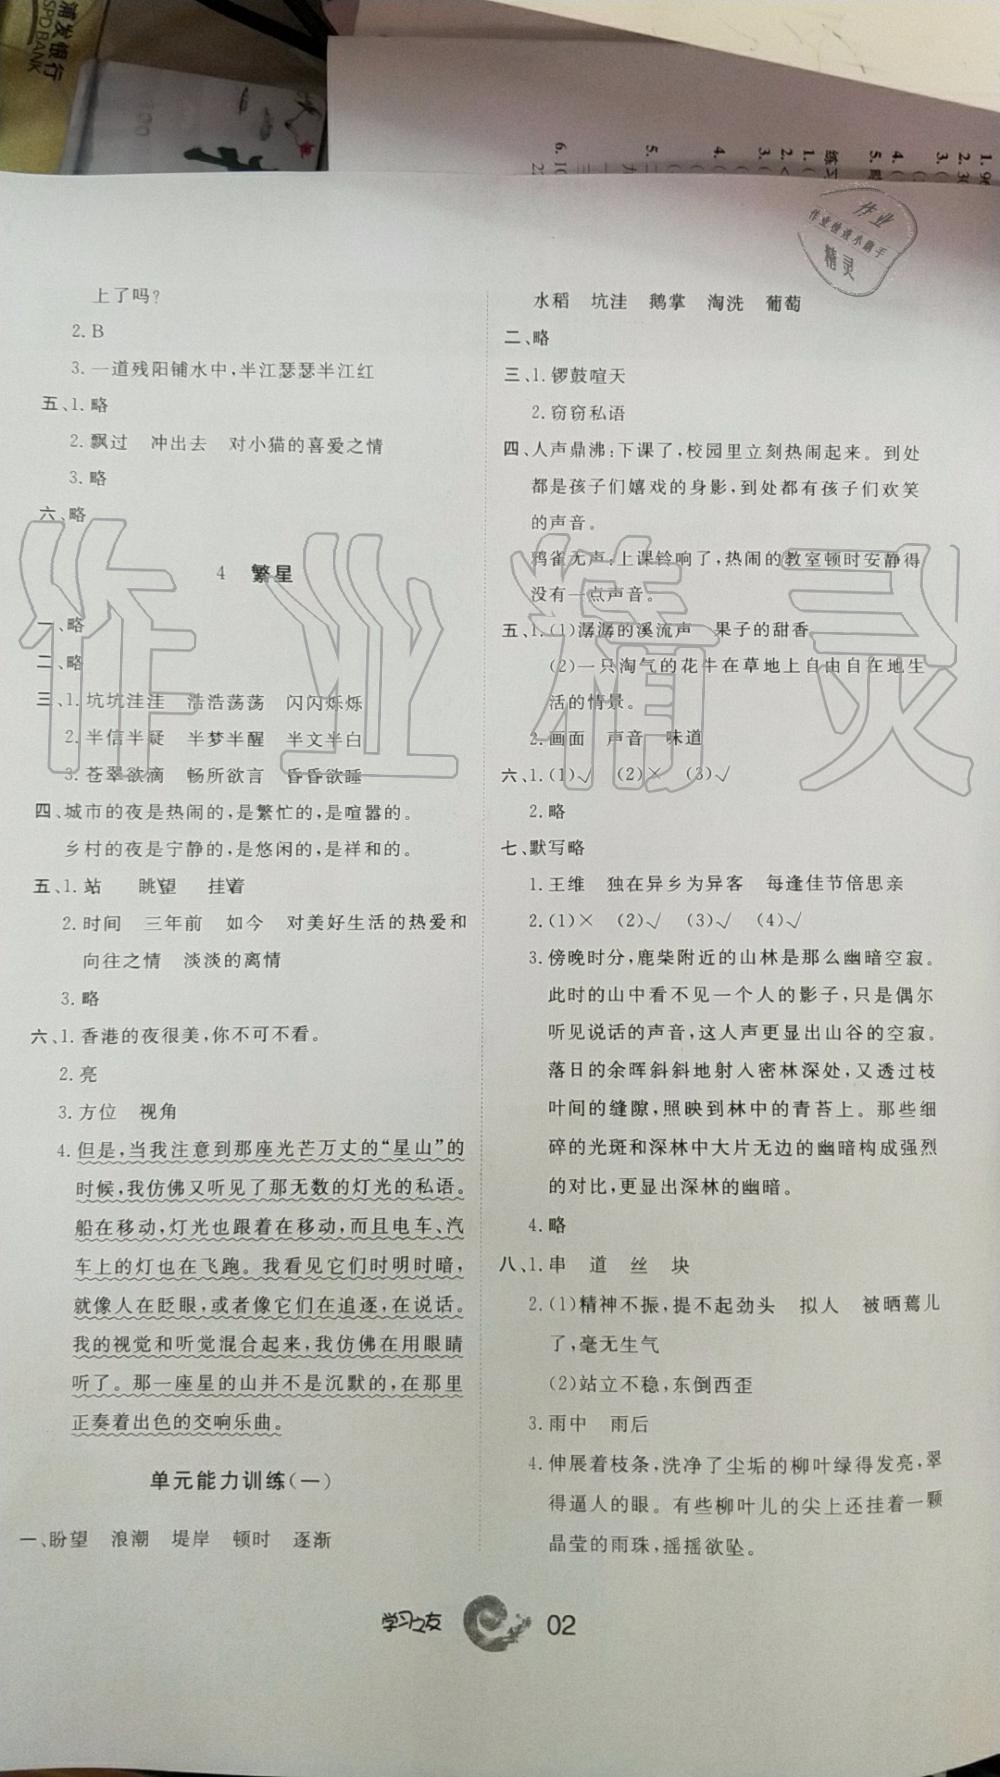 浦发银行
SPD BANK
上了吗?
2.B
3.一道残阳铺水中,半江瑟瑟半江红
五、1.略
2.飘过 冲出去 对小猫的喜爱之情
3.略
六、略
4 繁星
一、略
二、略
三、1.坑坑洼洼 浩浩荡荡 闪闪烁烁
2.半信半疑 半梦半醒 半文半白
3.苍翠欲滴 畅所欲言 昏昏欲睡
四、城市的夜是热闹的,是繁忙的,是喧嚣的。
乡村的夜是宁静的,是悠闲的,是祥和的。
五、1.站 眺望 挂着
2.时间 三年前 如今 对美好生活的热爱和
向往之情 淡淡的离情
3.略
六、1.香港的夜很美,你不可不看。
2.亮
3.方位 视角
4.但是,当我注意到那座光芒万丈的“星山”的
时候,我仿佛又听见了那无数的灯光的私语。
船在移动,灯光也跟着在移动,而且电车、汽
车上的灯也在飞跑。我看见它们时明时暗,
就像人在眨眼,或者像它们在追逐,在说话。
我的视觉和听觉混合起来,我仿佛在用眼睛
听了。那一座星的山并不是沉默的,在那里
正奏着出色的交响乐曲。
单元能力训练(一)
一、盼望 浪潮 堤岸 顿时 逐渐
水稻 坑洼 鹅掌 淘洗 葡萄
二、略
三、1.锣鼓喧天
2.窃窃私语
四、人声鼎沸:下课了,校园里立刻热闹起来。到处
都是孩子们嬉戏的身影,到处都有孩子们欢笑
的声音。
鸦雀无声:上课铃响了,热闹的教室顿时安静得
没有一点声音。
五、1.(1)潺潺的溪流声 果子的甜香
(2)一只淘气的花牛在草地上自由自在地生
活的情景。
2.画面 声音 味道
六、1.(1)√ (2)× (3)√
2.略
七、默写略
1.王维 独在异乡为异客 每逢佳节倍思亲
2.(1)× (2)√ (3)√ (4)√
3.傍晚时分,鹿柴附近的山林是那么幽暗空寂。
此时的山中看不见一个人的影子,只是偶尔
听见说话的声音,这人声更显出山谷的空寂。
落日的余晖斜斜地射入密林深处,又透过枝
叶间的缝隙,照映到林中的青苔上。那些细
碎的光斑和深林中大片无边的幽暗构成强烈
的对比,更显出深林的幽暗。
4.略
八、1.串 道 丝 块
2.(1)精神不振,提不起劲头 拟人 被晒蔫儿
了,毫无生气
(2)站立不稳,东倒西歪
3.雨中 雨后
4.伸展着枝条,洗净了尘垢的柳叶绿得发亮,翠
得逼人的眼。有些柳叶儿的尖上还挂着一颗
晶莹的雨珠,摇摇欲坠。
学习之友 02
作业
作业检查小助手
精灵
作业精灵